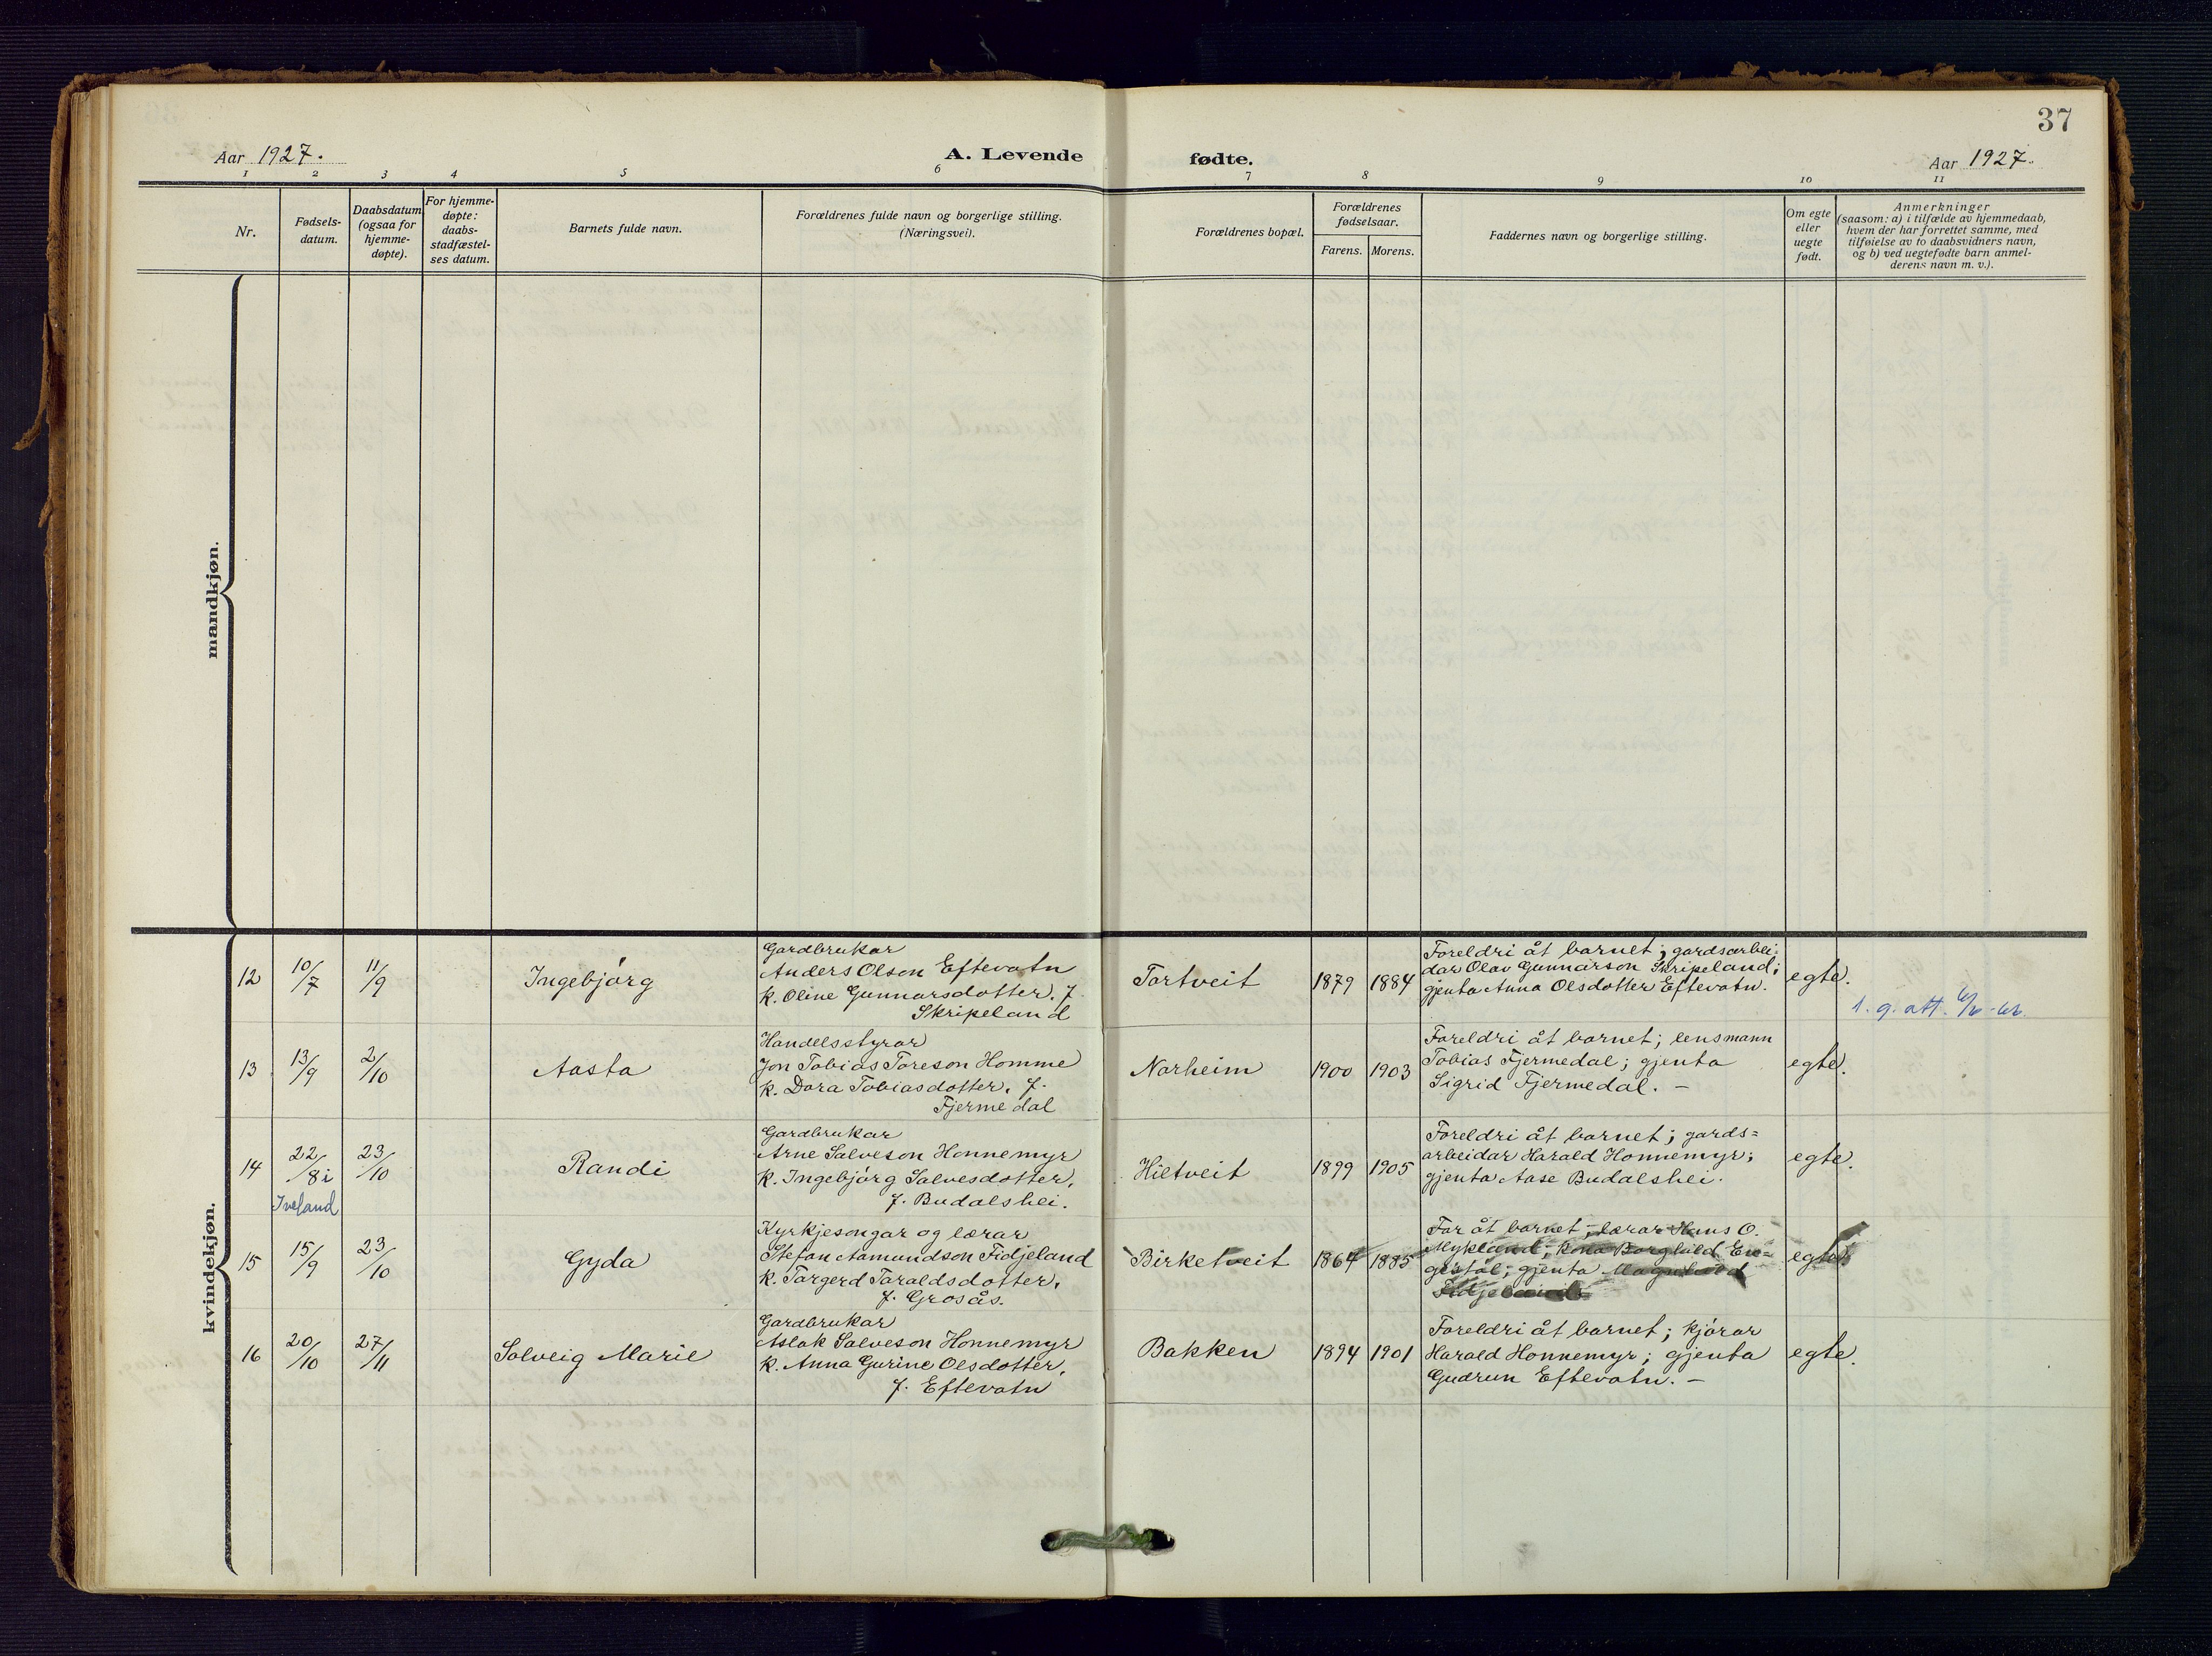 37
Aar 1927.
A. Levende
fødte.
Aar 1927.
1 2 3 4 5 6 7 8 9 10 11
Nr.
Fødsels-
datum.
Daabsdatum
(ogsaa for
hjemme-
døpte).
For hjemme-
døpte:
daabs-
stadfæstel-
ses datum.
Barnets fulde navn.
Forældrenes fulde navn og borgerlige stilling.
(Næringsvei).
Forældrenes bopæl.
Forældrenes
fødselsaar.
Farens. Morens.
Faddernes navn og borgerlige stilling.
Om egte
eller
uegte
født.
Anmerkninger
(saasom: a) i tilfælde av hjemmedaab,
hvem der har forrettet samme, med
tilføielse av to daabsvidners navn,
og b) ved uegtefødte barn anmel-
derens navn m. v.).
mandkjøn.
kvindekjøn.
12 10/7 11/9 Ingebjörg
Gardbrukar
Anders Olson Eftevatn
k. Oline Gunnarsdotter, f.
Skripeland
Tortveit 1879 1884
Foreldri åt barnet; gardsarbei-
dar Olav Gunnarson Skripeland;
gjenta Anna Olsdotter Eftevatn.
egte.
1. g. att.
13 13/9 2/10 Aasta
Handelsstyrar
Jon Tobias Toreson Homme
k. Dora Tobiasdotter, f.
Fjermedal
Norheim 1900 1903
Foreldri åt barnet; lensmann
Tobias Fjermedal; gjenta
Sigrid Fjermedal. –
egte.
14 22/8 i Iveland 23/10 Randi
Gardbrukar
Arne Salveson Honnemyr
k. Ingebjörg Salvesdotter,
f. Budalshei.
Hiltveit 1899 1905
Foreldri åt barnet; gards=
arbeidar Harald Honnemyr;
gjenta Aase Budalshei.
egte.
15 15/9 23/10 Gyda
Kyrkjesongar og lærar
Stefan Aamundson Fidjeland
k. Targerd Taraldsdotter,
f. Grosås.
Birketveit 1864 1885
Far åt barnet; lærar Hans O.
Mykland; kona Borghild En=
gestöl; gjenta
Fidjeland
egte
16 20/10 27/11 Solveig Marie
Gardbrukar
Aslak Salveson Honnemyr
k. Anna Gurine Olsdotter,
f. Eftevatn
Bakken 1894 1901
Foreldri åt barnet; kjörar
Harald Honnemyr; gjenta
Gudrun Eftevatn. –
egte.